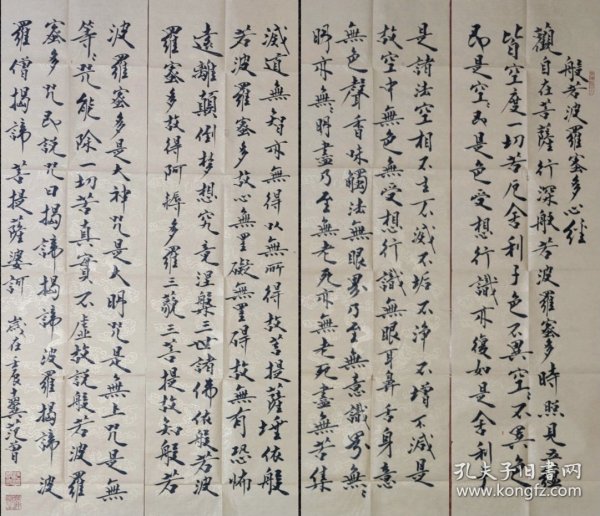 般若波羅蜜多心經
觀自在菩薩行深般若波羅蜜多時照見五蘊
皆空度一切苦厄舍利子色不異空〻不異色
即是空〻即是色受想行識亦復如是舍利子
是諸法空相不生不滅不垢不淨不增不減是
故空中無色無受想行識無眼耳鼻舌身意
無色聲香味觸法無眼界乃至無意識界無〻
明亦無明盡乃至無老死亦無老死盡無苦集
滅道無智亦無得以無所得故菩提薩埵依般
若波羅蜜多故心無罣礙無罣碍故無有恐怖
遠離顛倒夢想究竟涅槃三世諸佛依般若波
羅蜜多故得阿耨多羅三藐三菩提故知般若
波羅蜜多是大神咒是大明咒是無上咒是無
等〻咒能除一切苦真實不虛故說般若波羅
蜜多咒即說咒曰揭諦揭諦波羅揭諦波
羅僧揭諦菩提薩婆訶
歲在壬辰 范曾
孔夫子旧书网
www.kongfz.com